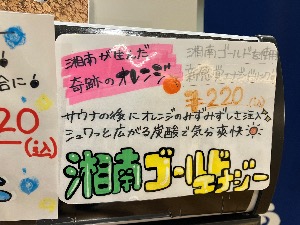 合に
20
(込)
湘南が生んだ
奇跡のオレンジ
湘南ゴールドを使用
¥220(込)
サウナの後にオレンジのみずみずしさ注入
シュワッと広がる炭酸で気分爽快
湘南ゴールド
エナジー